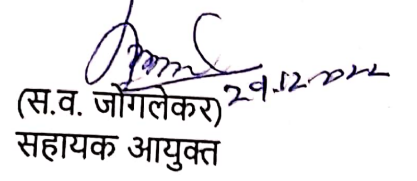 29.12.2022
(स.व. जोगलेकर)
सहायक आयुक्त